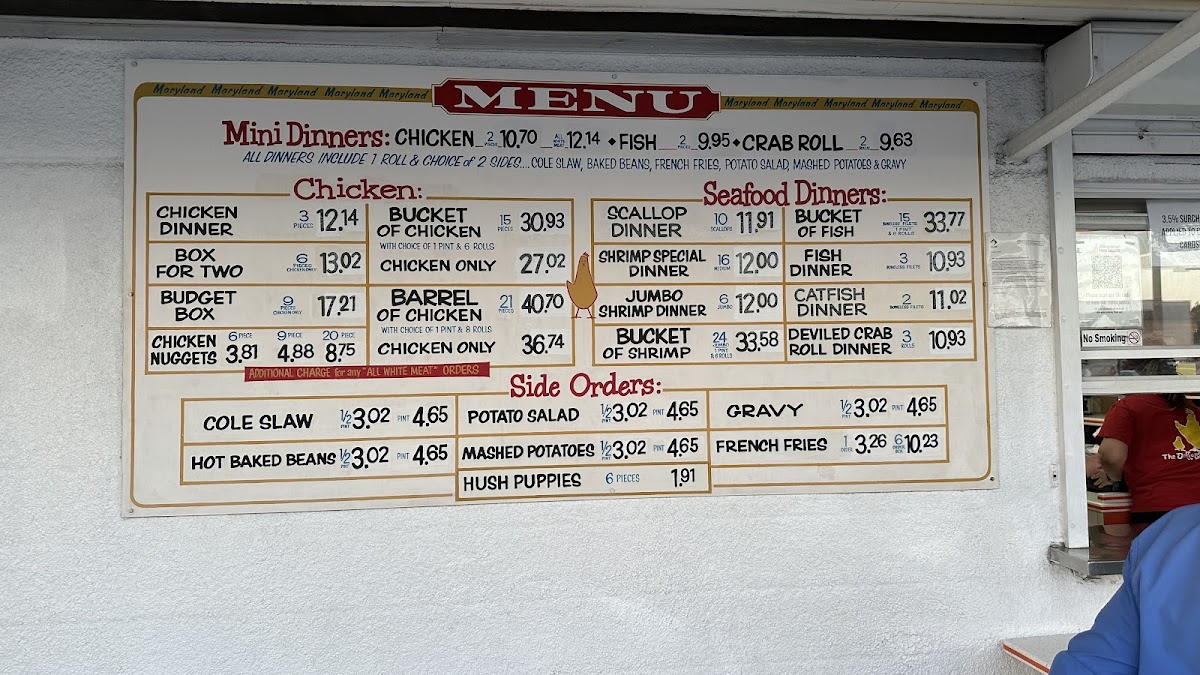 Maryland Maryland Maryland Maryland Maryland MENU Maryland Maryland Maryland Maryland Maryland
Mini Dinners: CHICKEN 2 PIECES 10.70 ALL WHITE 12.14 ◆ FISH 2 PIECES 9.95 ◆ CRAB ROLL 2 9.63
ALL DINNERS INCLUDE 1 ROLL & CHOICE of 2 SIDES.... COLE SLAW, BAKED BEANS, FRENCH FRIES, POTATO SALAD, MASHED POTATOES & GRAVY
Chicken:
CHICKEN DINNER 3 PIECES 12.14
BOX FOR TWO 6 PIECES CHICKEN ONLY 13.02
BUDGET BOX 9 PIECES CHICKEN ONLY 17.21
CHICKEN NUGGETS 6 PIECE 3.81 9 PIECE 4.88 20 PIECE 8.75
BUCKET OF CHICKEN 15 PIECES 30.93
WITH CHOICE OF 1 PINT & 6 ROLLS
CHICKEN ONLY 27.02
BARREL OF CHICKEN 21 PIECES 40.70
WITH CHOICE OF 1 PINT & 8 ROLLS
CHICKEN ONLY 36.74
ADDITIONAL CHARGE for any "ALL WHITE MEAT" ORDERS
Seafood Dinners:
SCALLOP DINNER 10 SCALLOPS 11.91
SHRIMP SPECIAL DINNER 16 MEDIUM 12.00
JUMBO SHRIMP DINNER 6 JUMBO 12.00
BUCKET OF SHRIMP 24 JUMBO 1 PINT & 6 ROLLS 33.58
BUCKET OF FISH 15 BONELESS FILETS 1 PINT & 6 ROLLS 33.77
FISH DINNER 3 BONELESS FILETS 10.93
CATFISH DINNER 2 BONELESS FILETS 11.02
DEVILED CRAB ROLL DINNER 3 ROLLS 10.93
Side Orders:
COLE SLAW ½ PINT 3.02 PINT 4.65
HOT BAKED BEANS ½ PINT 3.02 PINT 4.65
POTATO SALAD ½ PINT 3.02 PINT 4.65
MASHED POTATOES ½ PINT 3.02 PINT 4.65
HUSH PUPPIES 6 PIECES 1.91
GRAVY ½ PINT 3.02 PINT 4.65
FRENCH FRIES 1 ORDER 3.26 6 10.23
3.5% SURCH
APPLIED TO
CARDS
No Smoking
The